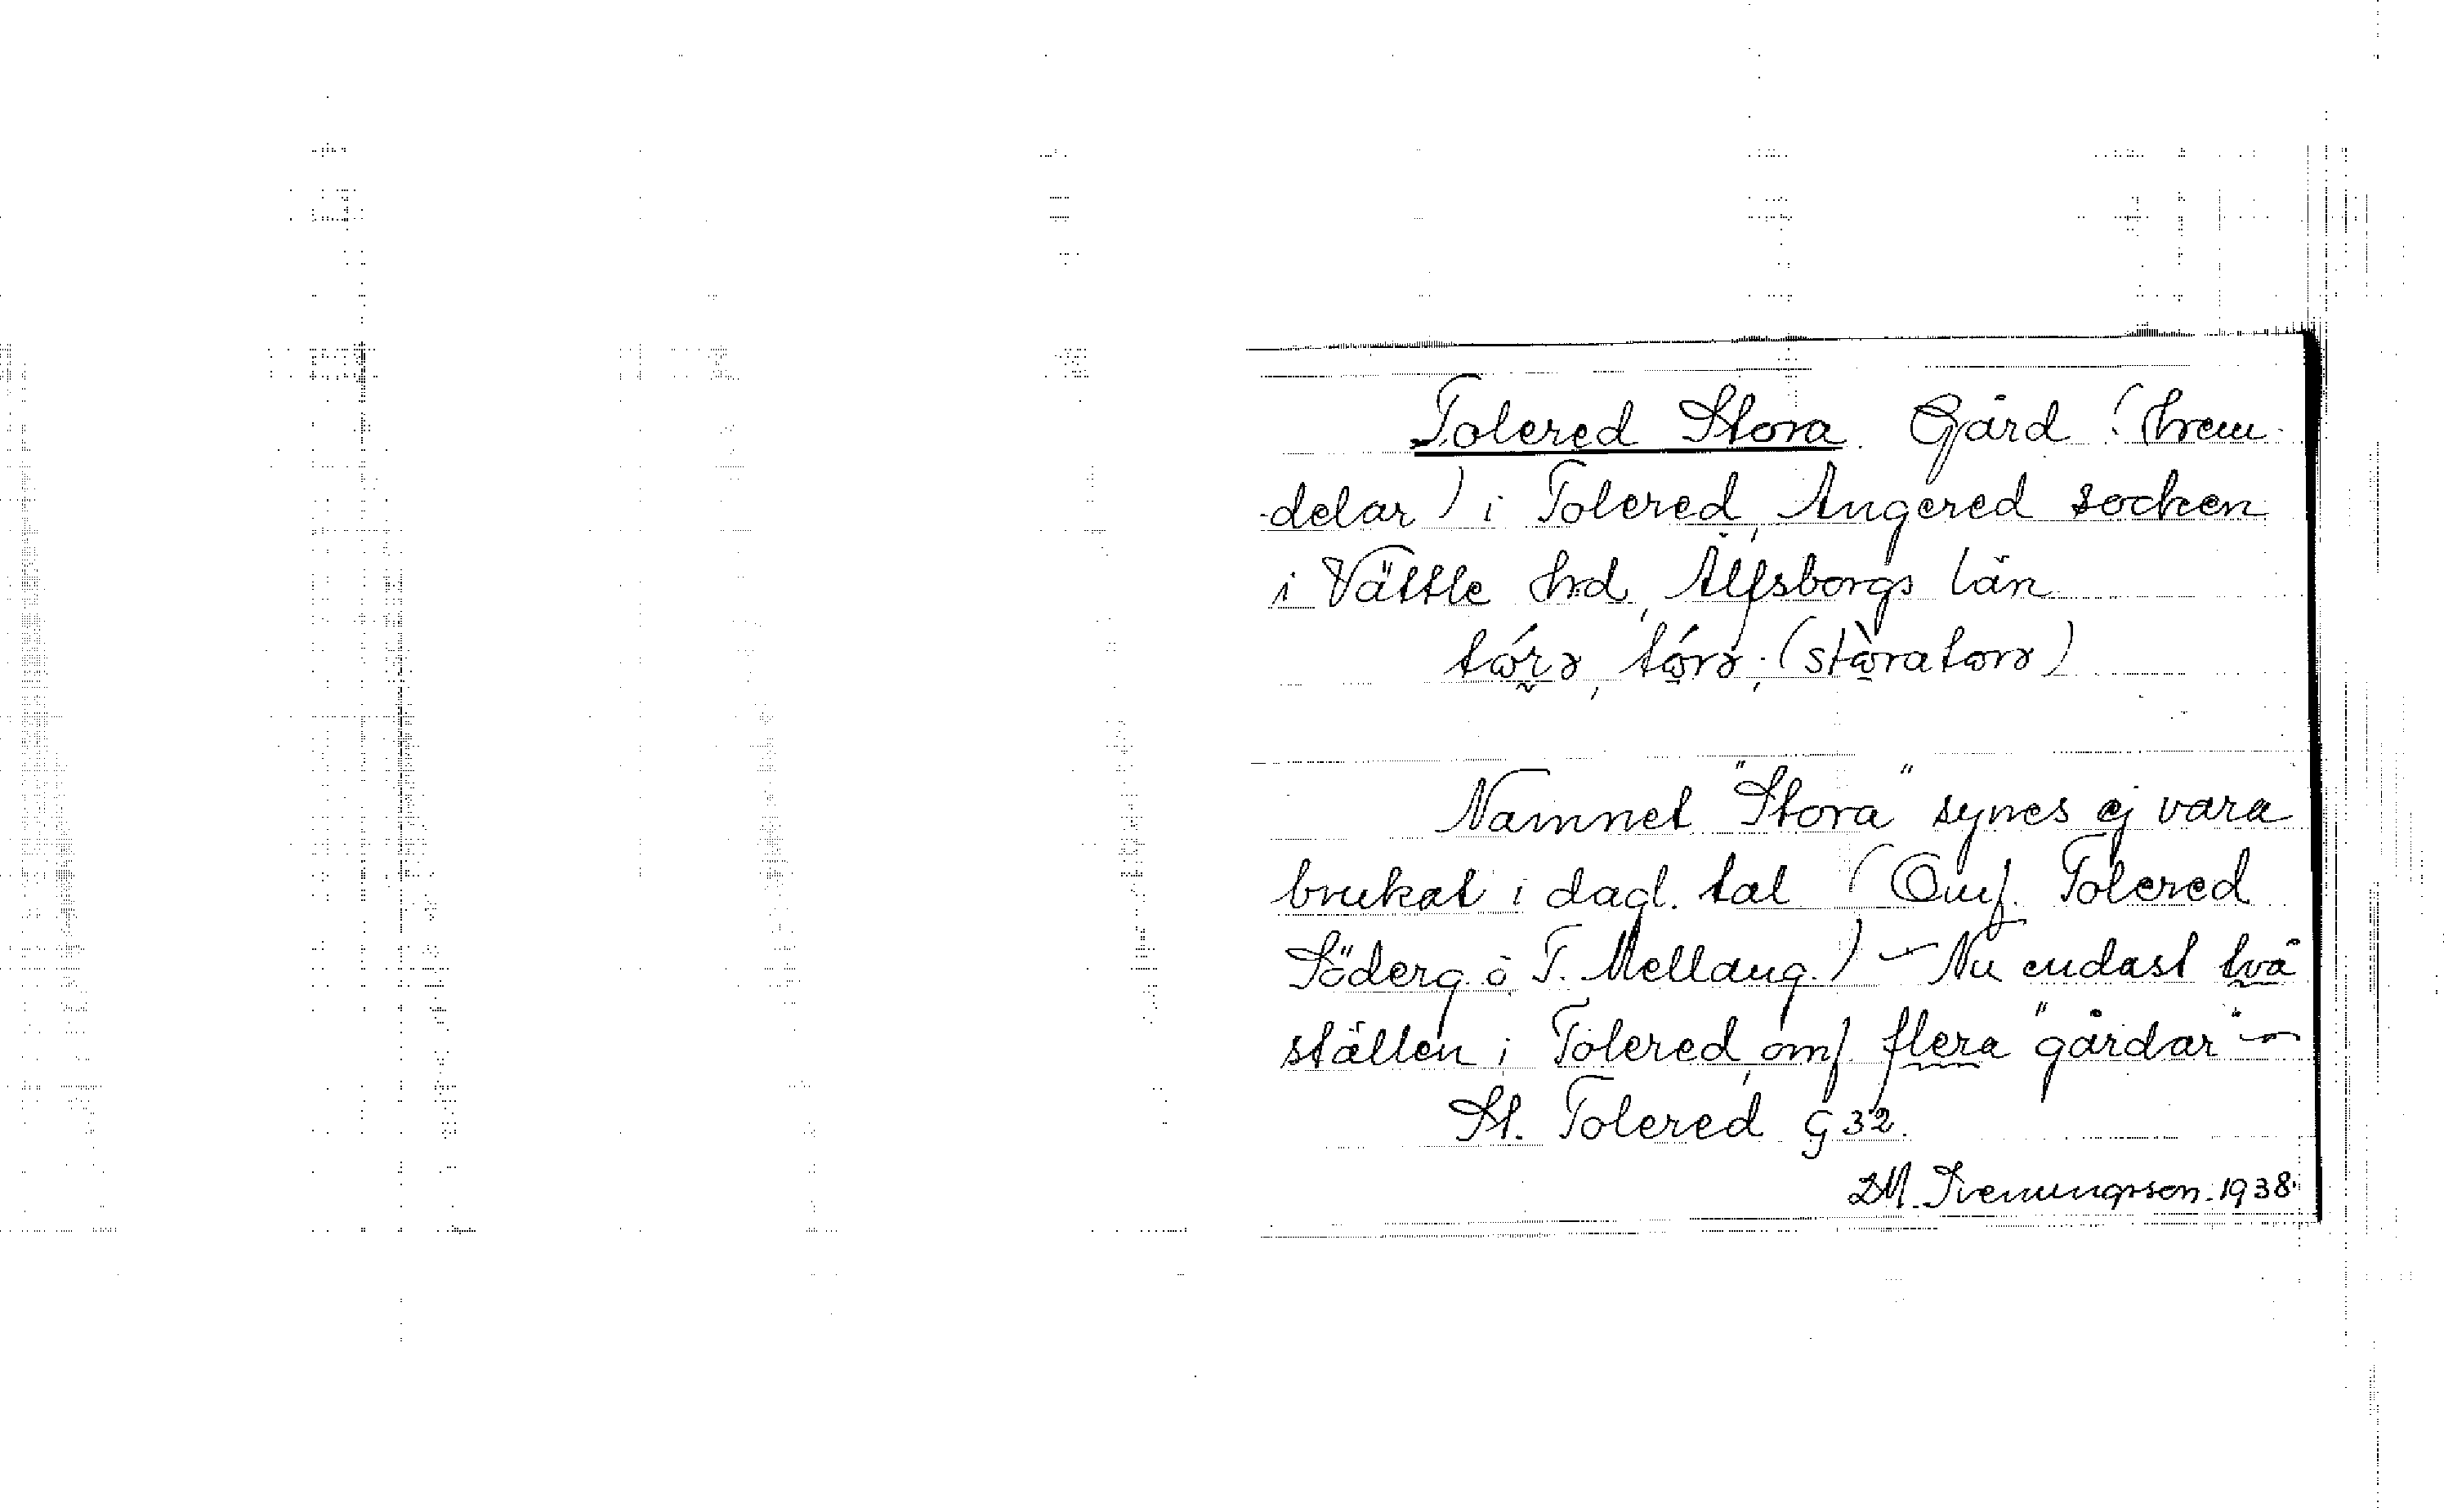 Tolered Stora. Gård (hem-
delar) i Tolered, Angered socken
i Vättle hd, Älfsborgs län
Namnet "Stora" synes ej vara
brukat i dagl. tal (Omf. Tolered
Söderg. o. T. Mellang.) – Nu endast två
ställen i Tolered, omf. flera "gårdar" –
St. Tolered G 32.
D.M. Svenungsson. 1938.